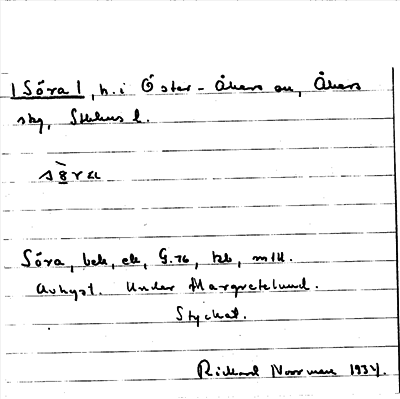 |Sóra|, h. i Öster-Åkers sn, Åkers
skg, Sthlms l.
Sóra, bek, ek, G. 76, tzb, mtl.
Avhyst. Under Margretelund.
Styckat.
Richard Norrman 1934.